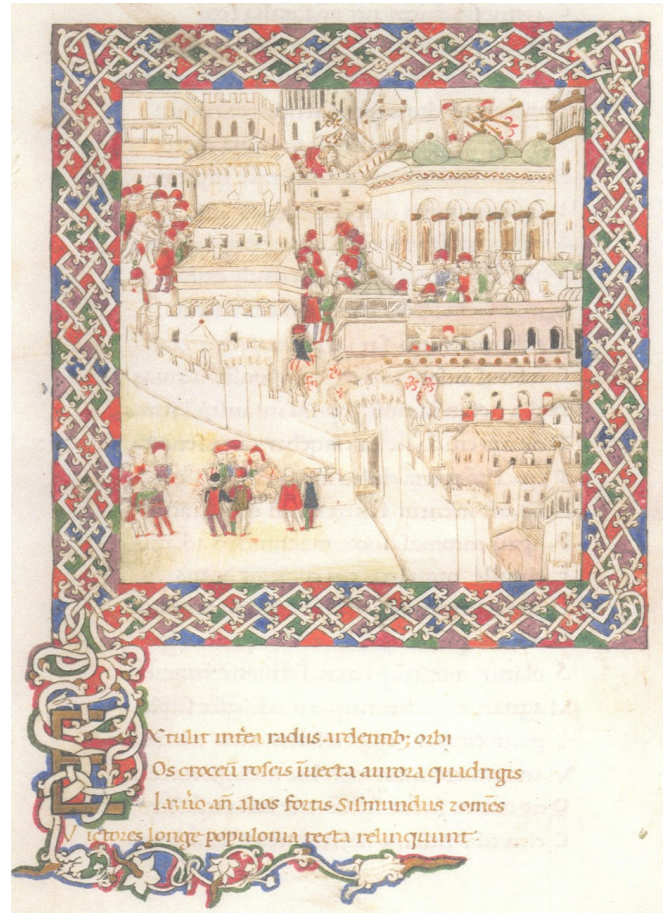 EXtulit int̃ea radiis ardentib; orbi
Os croceũ roseis ĩuecta aurora quadrigis
añ alios fortis Sismundus 7 omẽs
Victores longe populonia tecta relinquunt.